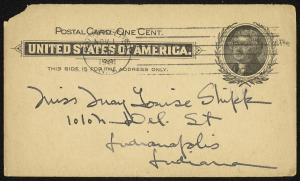 POSTAL CARD, ONE CENT.
UNITED STATES OF AMERICA.
THIS SIDE IS FOR THE ADDRESS ONLY.
Miss May Louise Shipp
1010 N Del. St
Indianapolis
Indiana